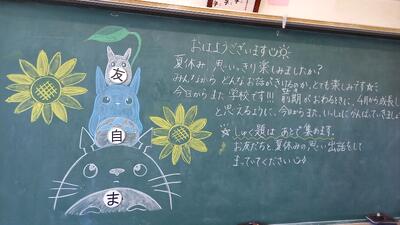 おはようございます
夏休み、思いっきり楽しみましたか?
みんなからどんなお話がきけるのか、とても楽しみです
今日からまた学校です!!! 前期がおわるときに、4月から成長した
と思えるように、今日からまた、いっしょにがんばっていきましょう
☆しゅく題は あとで集めます。
お友だちと夏休みの思い出話をして
まっていてください
友
自
ま